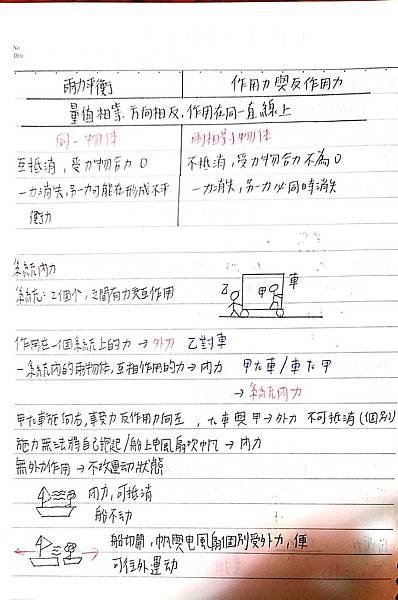 No.
Date
兩力平衡 作用力與反作用力
量值相等、方向相反、作用在同一直線上
同一物体 兩相異物体
互抵消，受力物合力0 不抵消，受力物合力不為0
一力消失，另一力可能在形成不平 一力消失，另一力必同時消失
衡力
系統內力
系統：2個个，之間有力交互作用
乙 甲 車
作用在一個系統上的力→外力 乙對車
一系統內的兩物体，互相作用的力→內力 甲力車/車力甲
→系統內力
甲力車施向右，車受力反作用力向左，力車與甲→外力 不可抵消(個別)
施力無法將自己抱起/船上電風扇吹帆→內力
無外力作用→不改運动狀態
內力，可抵消
船不动
船切開，帆與电風扇個別受外力，便
可往外運动